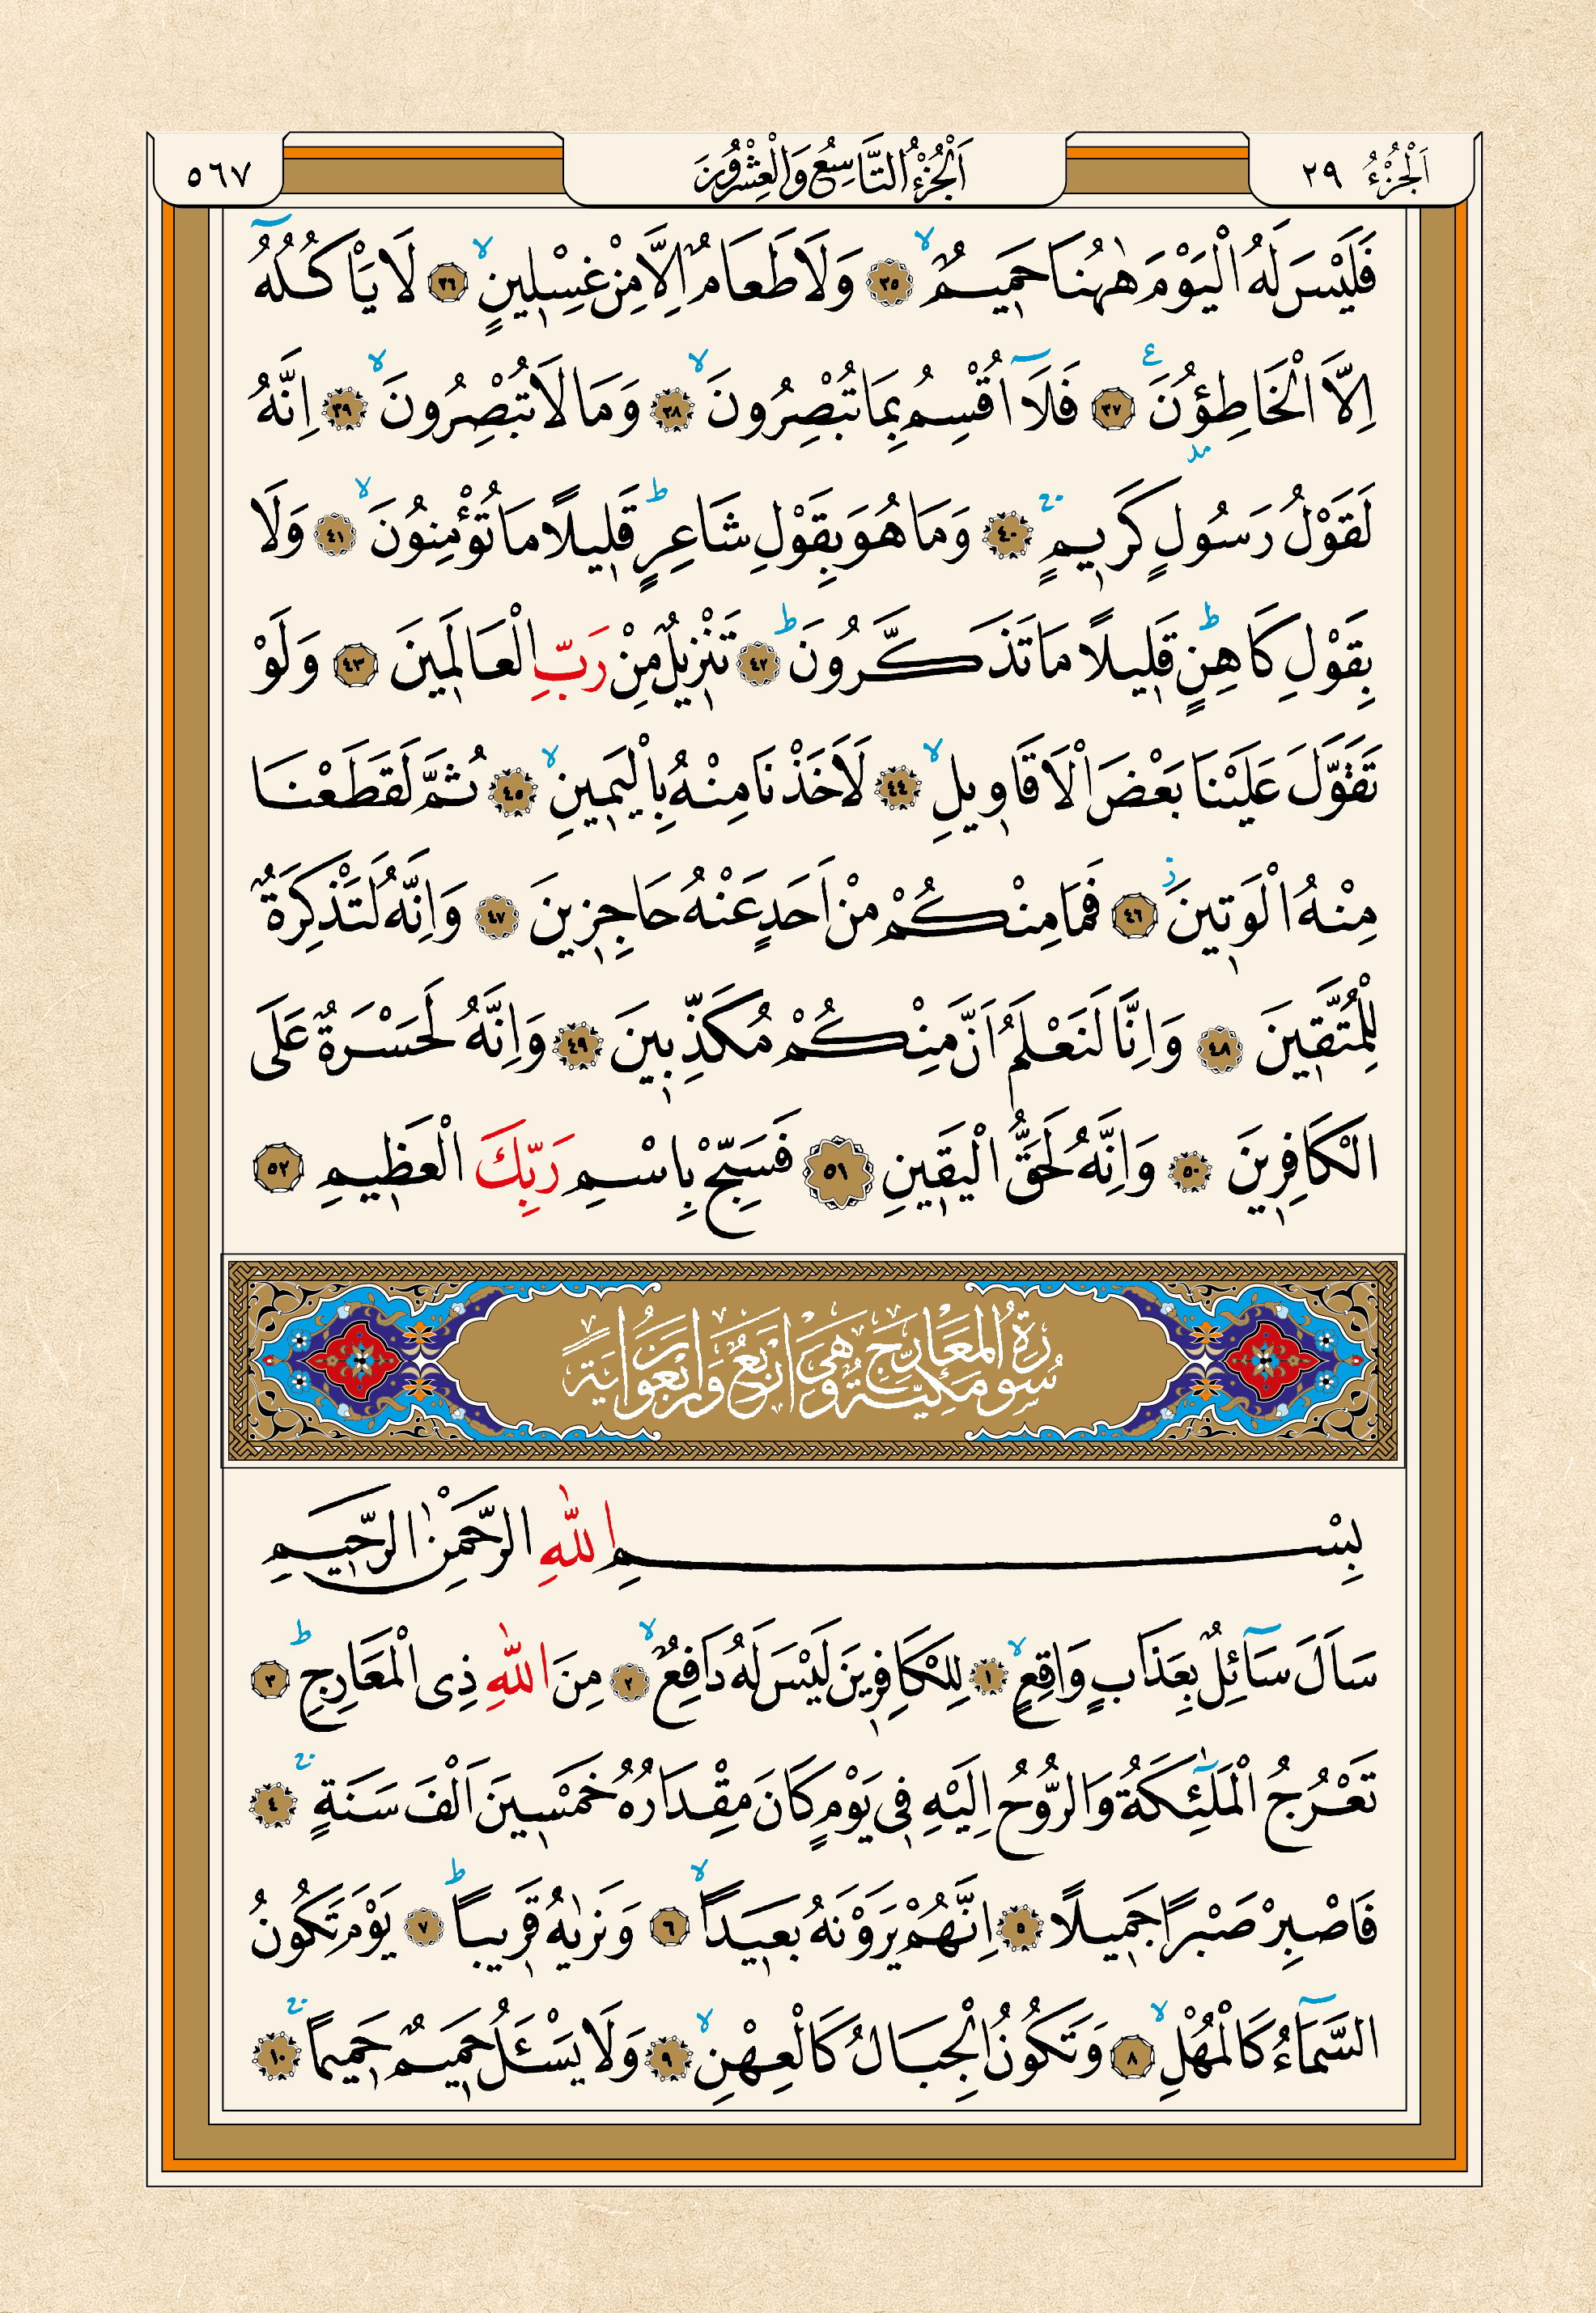 اَلْجُزْءُ ٢٩
اَلْجُزْءُ التَّاسِعُ وَالْعِشْرُونَ
٥٦٧
فَلَيْسَ لَهُ الْيَوْمَ هٰهُنَا حَم۪يمٌۙ ﴿٣٥﴾ وَلَا طَعَامٌ اِلَّا مِنْ غِسْل۪ينٍۙ ﴿٣٦﴾ لَا يَأْكُلُهُٓ
اِلَّا الْخَاطِؤُ۫نَ۟ ﴿٣٧﴾ فَلَٓا اُقْسِمُ بِمَا تُبْصِرُونَۙ ﴿٣٨﴾ وَمَا لَا تُبْصِرُونَۙ ﴿٣٩﴾ اِنَّهُ
لَقَوْلُ رَسُولٍ كَر۪يمٍۚ ﴿٤٠﴾ وَمَا هُوَ بِقَوْلِ شَاعِرٍۜ قَل۪يلًا مَا تُؤْمِنُونَۙ ﴿٤١﴾ وَلَا
بِقَوْلِ كَاهِنٍۜ قَل۪يلًا مَا تَذَكَّرُونَۜ ﴿٤٢﴾ تَنْز۪يلٌ مِنْ رَبِّ الْعَالَم۪ينَ ﴿٤٣﴾ وَلَوْ
تَقَوَّلَ عَلَيْنَا بَعْضَ الْاَقَاو۪يلِۙ ﴿٤٤﴾ لَاَخَذْنَا مِنْهُ بِالْيَم۪ينِۙ ﴿٤٥﴾ ثُمَّ لَقَطَعْنَا
مِنْهُ الْوَت۪ينَۘ ﴿٤٦﴾ فَمَا مِنْكُمْ مِنْ اَحَدٍ عَنْهُ حَاجِز۪ينَ ﴿٤٧﴾ وَاِنَّهُ لَتَذْكِرَةٌ
لِلْمُتَّق۪ينَ ﴿٤٨﴾ وَاِنَّا لَنَعْلَمُ اَنَّ مِنْكُمْ مُكَذِّب۪ينَ ﴿٤٩﴾ وَاِنَّهُ لَحَسْرَةٌ عَلَى
الْكَافِر۪ينَ ﴿٥٠﴾ وَاِنَّهُ لَحَقُّ الْيَق۪ينِ ﴿٥١﴾ فَسَبِّحْ بِاسْمِ رَبِّكَ الْعَظ۪يمِ ﴿٥٢﴾
سُورَةُ الْمَعَارِجِ مَكِّيَّةٌ وَهِيَ اَرْبَعٌ وَاَرْبَعُونَ اٰيَةً
بِسْمِ اللّٰهِ الرَّحْمٰنِ الرَّح۪يمِ
سَاَلَ سَٓائِلٌ بِعَذَابٍ وَاقِعٍۙ ﴿١﴾ لِلْكَافِر۪ينَ لَيْسَ لَهُ دَافِعٌۙ ﴿٢﴾ مِنَ اللّٰهِ ذِي الْمَعَارِجِۜ ﴿٣﴾
تَعْرُجُ الْمَلٰٓئِكَةُ وَالرُّوحُ اِلَيْهِ ف۪ي يَوْمٍ كَانَ مِقْدَارُهُ خَمْس۪ينَ اَلْفَ سَنَةٍۚ ﴿٤﴾
فَاصْبِرْ صَبْرًا جَم۪يلًا ﴿٥﴾ اِنَّهُمْ يَرَوْنَهُ بَع۪يدًاۙ ﴿٦﴾ وَنَرٰيهُ قَر۪يبًاۜ ﴿٧﴾ يَوْمَ تَكُونُ
السَّمَٓاءُ كَالْمُهْلِۙ ﴿٨﴾ وَتَكُونُ الْجِبَالُ كَالْعِهْنِۙ ﴿٩﴾ وَلَا يَسْـَٔلُ حَم۪يمٌ حَم۪يمًاۚ ﴿١٠﴾